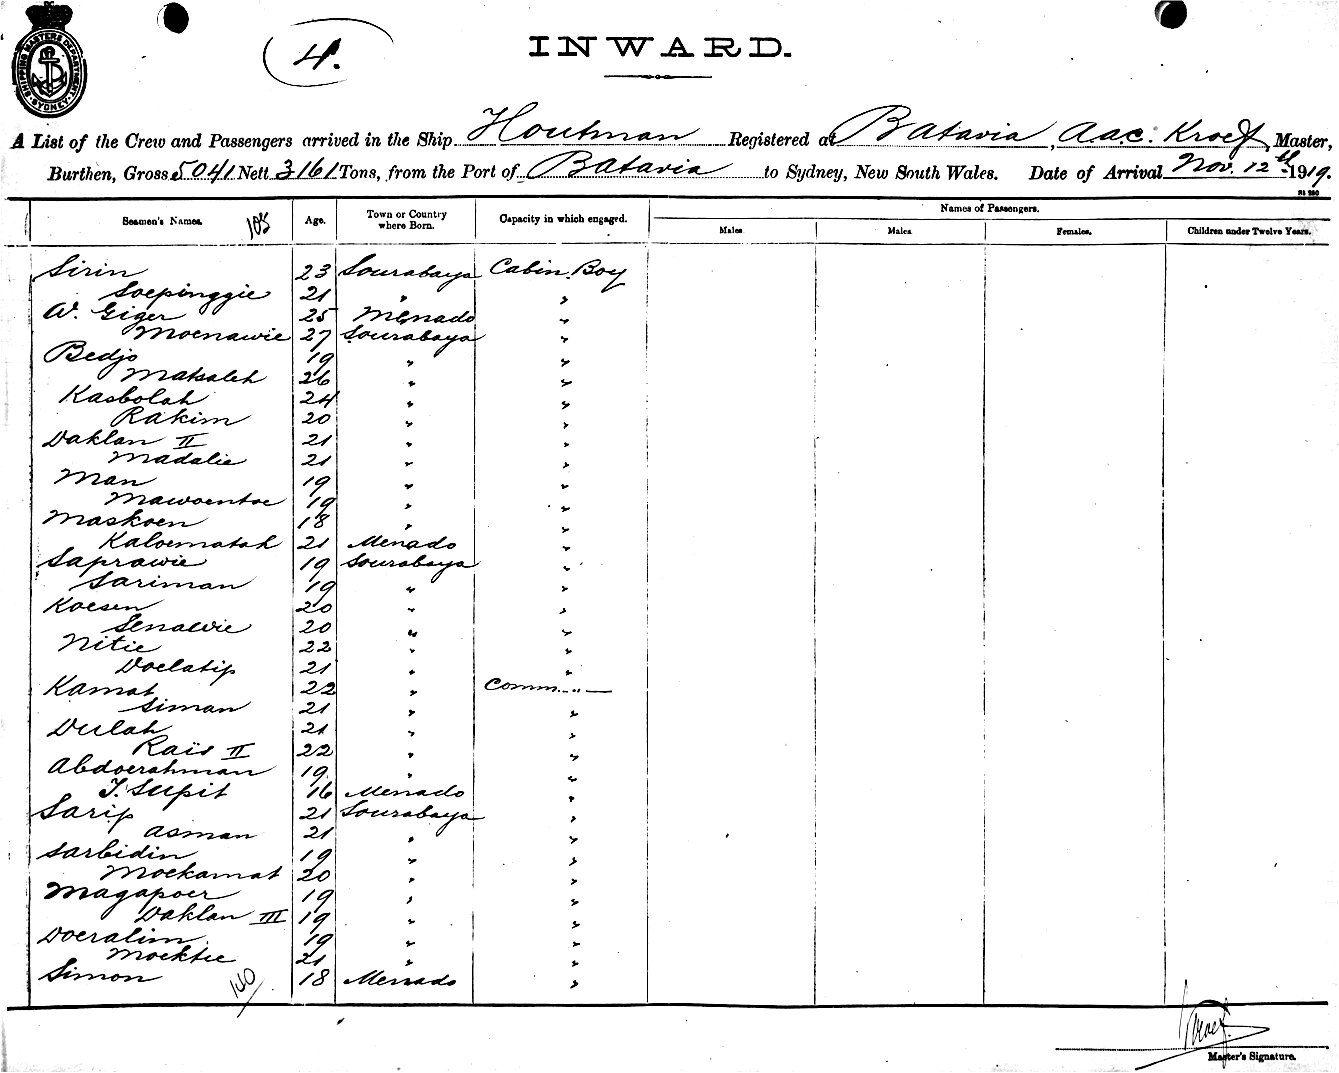 SHIPPING MASTERS DEPARTMENT SYDNEY
4.
INWARD.
A List of the Crew and Passengers arrived in the Ship Houtman Registered at Batavia, A.a.c. Kroef, Master,
Burthen, Gross 5041 Nett 3161 Tons, from the Port of Batavia to Sydney, New South Wales. Date of Arrival Nov. 12th 1919.
Seamen's Names. 105 Age. Town or Country where Born. Capacity in which engaged. Names of Passengers.
Males Males Females. Children under Twelve Years.
Sirin 23 Sourabaya Cabin Boy
Soepinggie 21 " "
W. Giger 25 Menado "
Moenawie 27 Sourabaya "
Bedjo 19 " "
Matsaleh 26 " "
Kasbolah 24 " "
Rakim 20 " "
Daklan II 21 " "
Madalie 21 " "
Man 19 " "
Mawoentoe 19 " "
Maskoen 18 " "
Kaloematah 21 Menado "
Saprawie 19 Sourabaya "
Sariman 19 " "
Koesen 20 " "
Senawie 20 " "
Nitie 22 " "
Doelatip 21 " "
Kamat 22 " Comm. "
Siman 21 " "
Dulah 21 " "
Rais II 22 " "
Abdoerahman 19 " "
T. Supit 16 Menado "
Sarip 21 Sourabaya "
Asman 21 " "
Sarbidin 19 " "
Moekamat 20 " "
Magapoer 19 " "
Daklan III 19 " "
Doeralim 19 " "
Moektee 21 " "
Simon 18 Menado "
140
Kroef
Master's Signature.